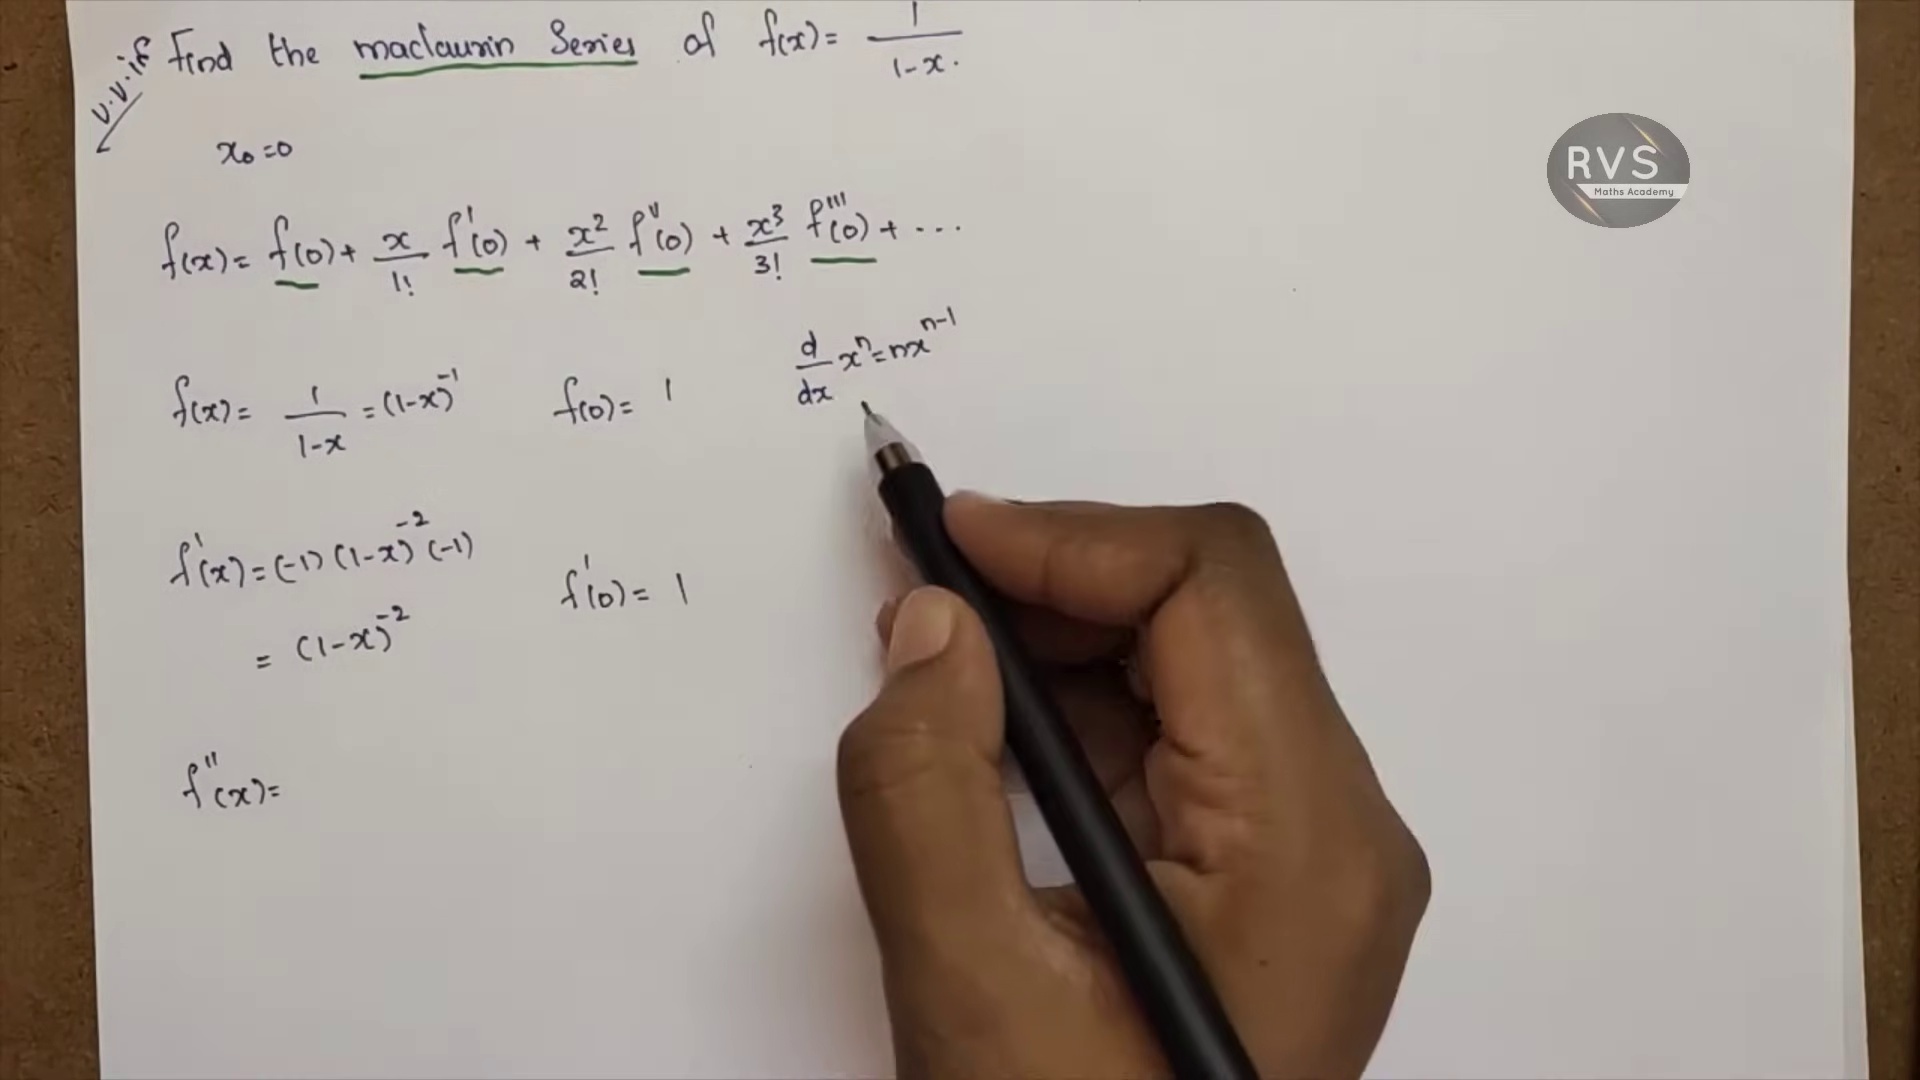 v.v.if
Find the maclaurin Series of f(x) = 1/(1-x).
RVS
Maths Academy
x₀ = 0
f(x) = f(0) + x/1! f'(0) + x²/2! f''(0) + x³/3! f'''(0) + ...
d/dx xⁿ = nxⁿ⁻¹
f(x) = 1/(1-x) = (1-x)⁻¹ f(0) = 1
f'(x) = (-1) (1-x)⁻² (-1) f'(0) = 1
= (1-x)⁻²
f''(x) =